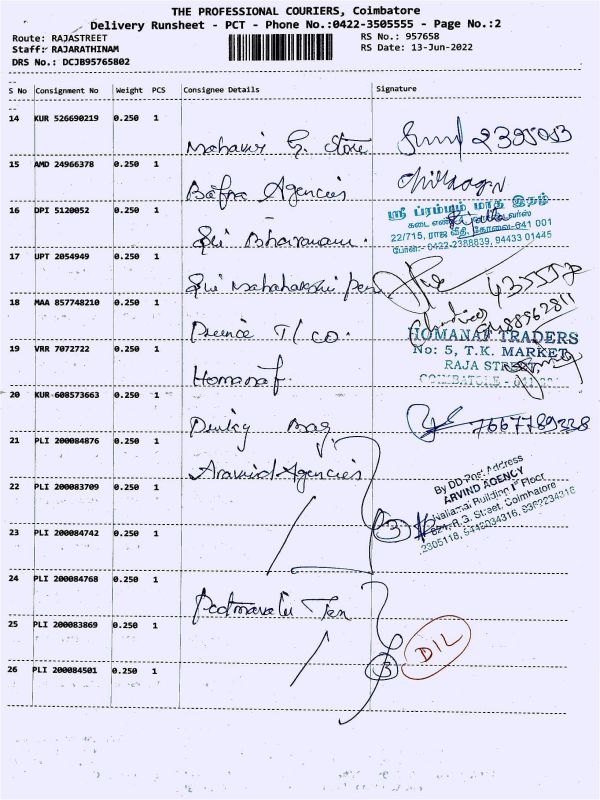 THE PROFESSIONAL COURIERS, Coimbatore
Delivery Runsheet - PCT - Phone No.:0422-3505555 - Page No.:2
Route: RAJASTREET
RS No.: 957658
Staff: RAJARATHINAM
RS Date: 13-Jun-2022
DRS No.: DCJB95765802
S No Consignment No Weight PCS Consignee Details Signature
14 KUR 526690219 0.250 1
Mahavir G. Store 2395053
15 AMD 24966378 0.250 1
Bafna Agencies
16 DPI 5120052 0.250 1
ஸ்ரீ ப்ரம்மம் மாத இதழ்
கடை எண்
22/715, ராஜ வீதி, கோவை-641 001
போன்:- 0422-2388839, 94433 01445
Sri Bhairavam.
17 UPT 2054949 0.250 1
Sri Mahalakshmi Pen
18 MAA 857748210 0.250 1
Prince T/ co.
HOMANAF TRADERS
No: 5, T.K. MARKET
RAJA STREET
COIMBATORE - 641
19 VRR 7072722 0.250 1
Homanaf.
20 KUR 608573663 0.250 1
Bag 7667789338
21 PLI 200084876 0.250 1
Aravind Agencies
By DD Post Address
ARVIND AGENCY
Nallamai Building 1st Floor
R.G. Street, Coimbatore
22 PLI 200083709 0.250 1
23 PLI 200084742 0.250 1
3
24 PLI 200084768 0.250 1
25 PLI 200083869 0.250 1
D/L
26 PLI 200084501 0.250 1
3